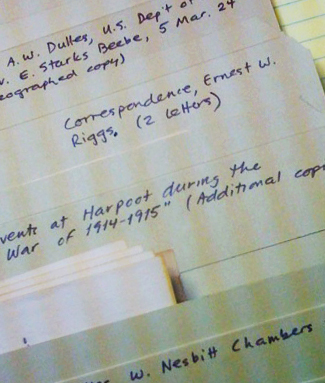 A.W. Dulles, U.S. Dep't of
E. Starks Beebe, 5 Mar. 24
eographed copy)
Correspondence, Ernest W.
Riggs. (2 letters)
vents at Harpoot during the
War of 1914-1915" (Additional cop
W. Nesbitt Chambers